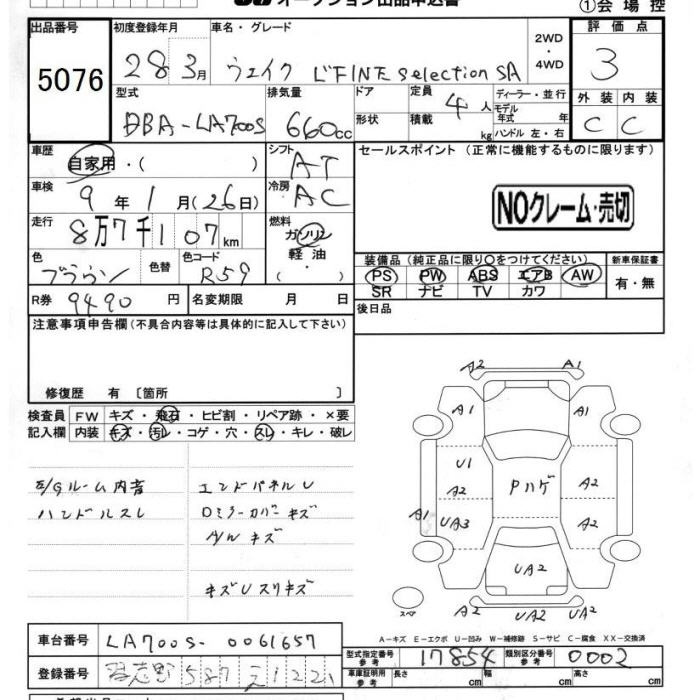 オークション出品申込書
①会場控
出品番号 初度登録年月 車名・グレード 2WD・4WD 評価点
5076 28 3月 ウェイク L'FINE selection SA 3
型式 排気量 ドア 定員 4人 ディーラー・並行 外装 内装
DBA-LA700S 660cc 形状 積載 kg モデル年式 年 C C
ハンドル 左・右
車歴 自家用・( ) シフト AT セールスポイント (正常に機能するものに限ります)
車検 9年1月(26日) 冷房 AC
NOクレーム・売切
走行 8万7千107km 燃料 ガソリン
軽油・( )
色 ブラウン 色替 色コード R59
装備品(純正品に限り○をつけてください) 新車保証書
PS PW ABS エアB AW 有・無
SR ナビ TV カワ
R券 9490円 名変期限 月 日 後日品
注意事項申告欄(不具合内容等は具体的に記入して下さい)
修復歴 有 〔箇所 〕
検査員 FW キズ・飛石・ヒビ割・リペア跡・×要
記入欄 内装 キズ・汚レ・コゲ・穴・スレ・キレ・破レ
E/Gルーム内音 エンドパネルU
ハンドルスレ ドミラーカバーキズ
A/Wキズ
キズUスリキズ
A2 A1
A1 A1
U1
A2 Pハゲ A2
A1 UA3 A2
UA2
スペア A2 UA2 UA2
A-キズ E-エクボ U-凹み W-補修跡 S-サビ C-腐食 XX-交換済
車台番号 LA700S-0061657
型式指定番号 参考 17854 類別区分番号 参考 0002
登録番号 習志野 587 え 1221
車庫証明用 参考 長さ cm 幅 cm 高さ cm